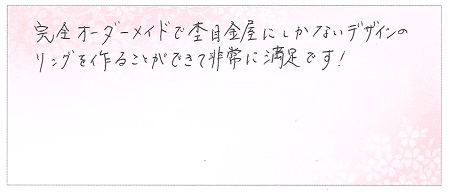 完全オーダーメイドで杢目金屋にしかないデザインの
リングを作ることができて非常に満足です!